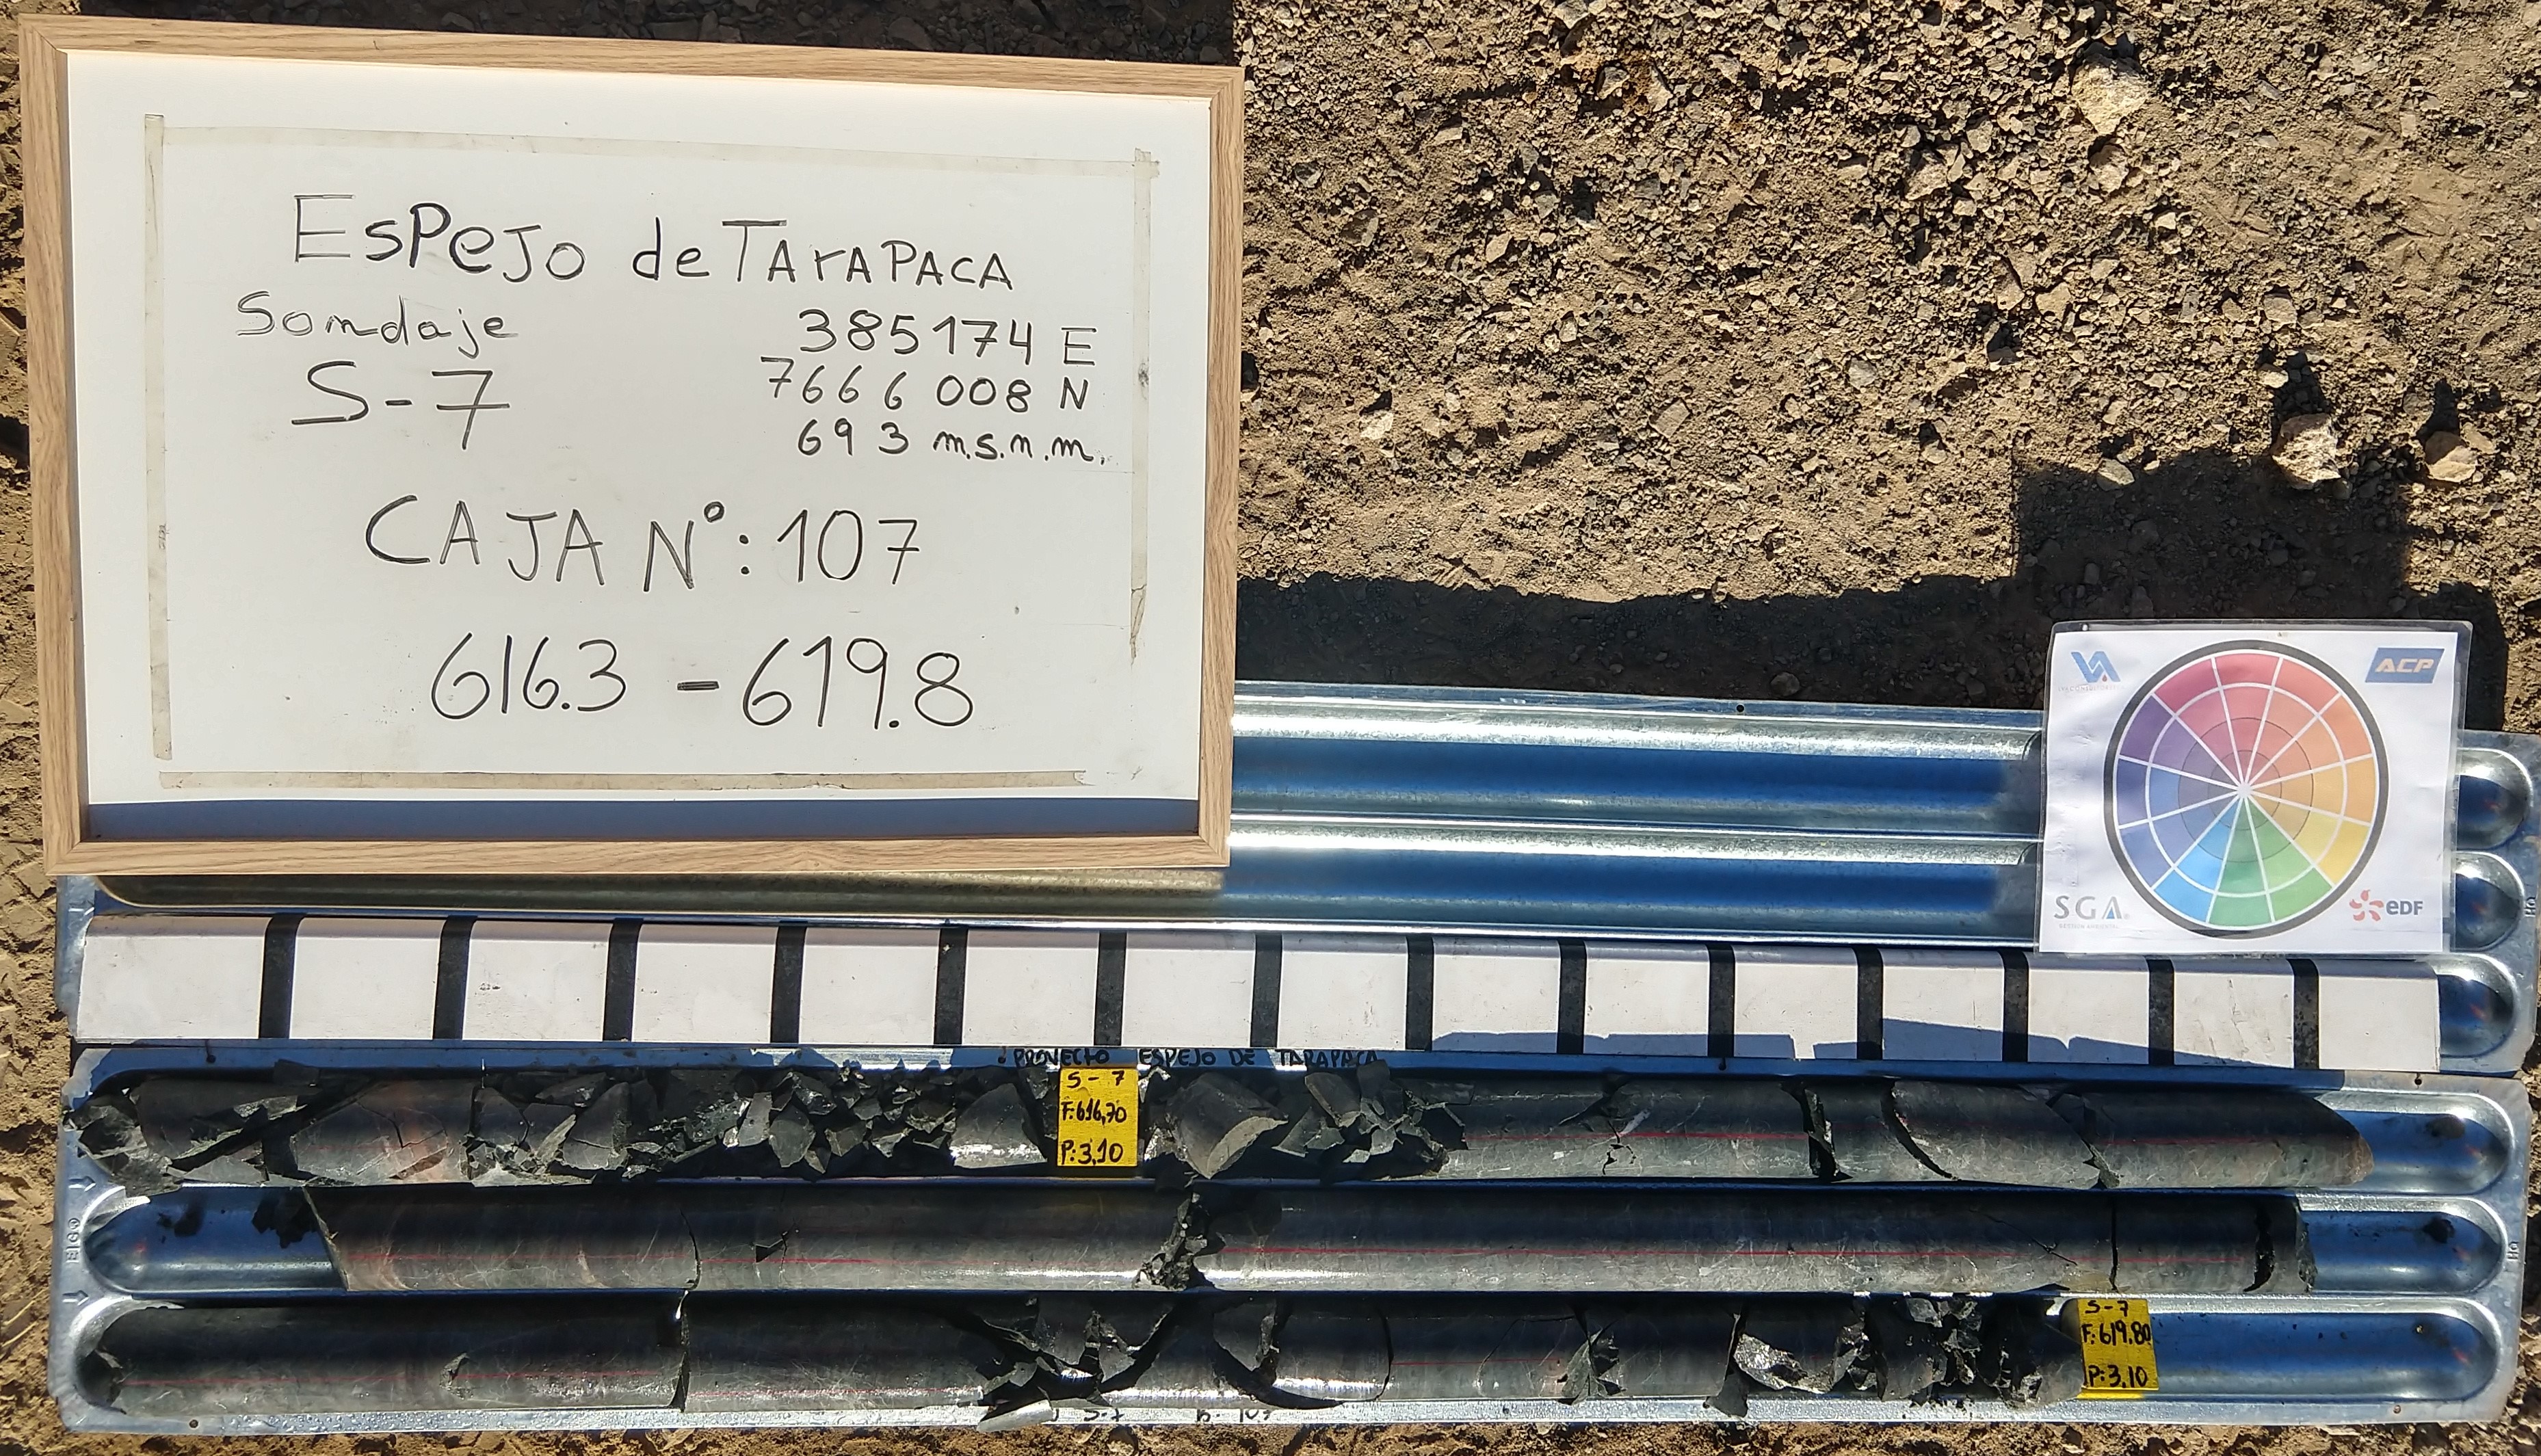 EsPeJo de TArAPACA
Sondaje
385174 E
S-7
7666 008 N
693 m.s.n.m.
CAJA N°: 107
616.3 - 619.8
ACP
SGA
eDF
PROYECTO ESPEJO DE TARAPACA
S-7
F:616,70
P:3,10
S-7
F:619.80
P:3,10
HQ
S-7